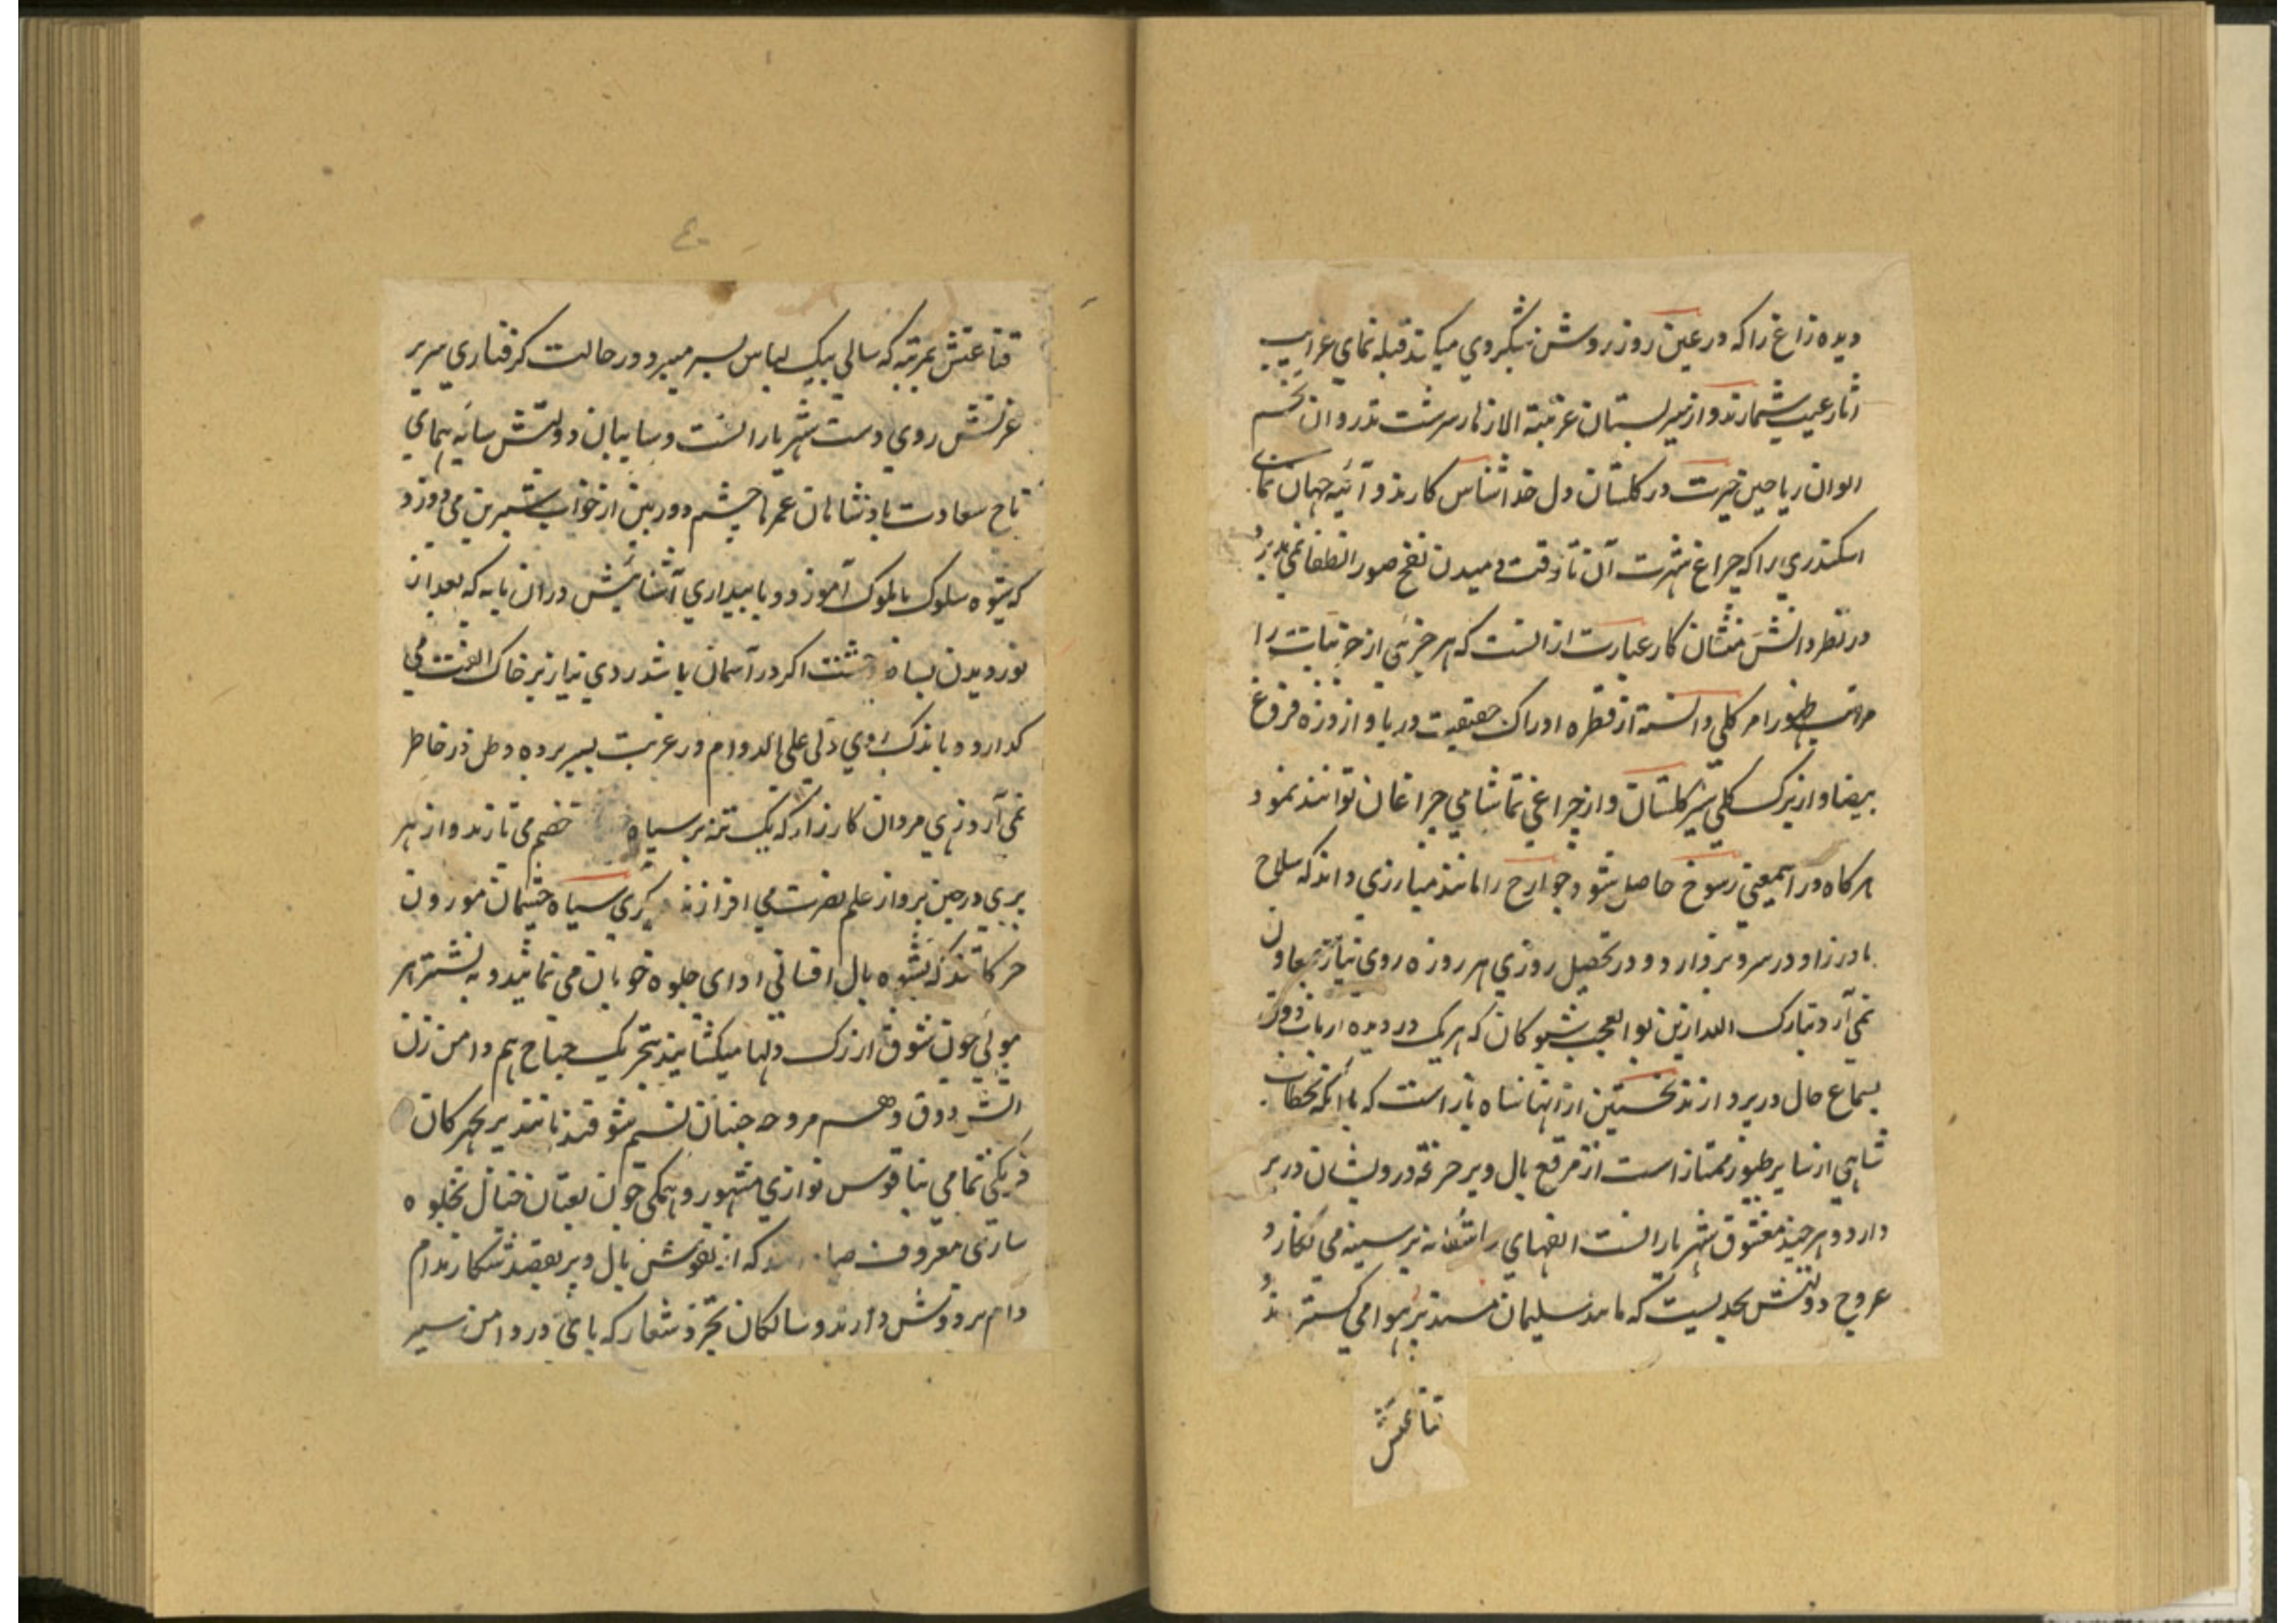 دیده زاغ را که در عین روز روشن شبکروی میکند قبله نمای غرایب
اثار غیب شمارند و از سیر بستان تذروان تخم
الوان ریاحین حیرت در کلستان دل خداشناس کارند و آئینه جهان نمای
اسکندری را که چراغ شهرت آن تا وقت دمیدن نفخ صور انطفا نمی پذیرد
در نظر دانش منشان کار عبارت از انست که هر جزئی از جزئیات را
مراتب ظهور امر کلی دانسته از قطره ادراک حقیقت دریا و از ذره فروغ
بیضا و از برک کلی سیر کلستان و از چراغی تماشای چراغان توانند نمود
هر کاه در اینمعنی رسوخ حاصل شود جوارح را مانند مبارزی داند که سلاح
مادرزاد در سر و بر دارد و در تحصیل روزی هر روزه روی نیاز بمعاون
نمی آرد تبارک الله ازین بوالعجب شیوکان که هر یک در دیده ارباب ذوق
بسماع حال در پروازند نخستین از انها شاه باز است که با آنکه بخطاب
شاهی از سایر طیور ممتاز است از مرقع بال و پر خرقه درویشان در بر
دارد و هر چند معشوق شهریارانست الفهای عاشقانه بر سینه می نکارد
عروج دولتش بحدیست که مانند سلیمان مسند بر هوا می کستراند
قناعتش
۴۰
قناعتش بمرتبه که سالی بیک لباس بسر میبرد و در حالت کرفتاری سریر
عزتش روی دست شهریارانست و سایبان دولتش سایه همای
تاج سعادت پادشاهان عمرها چشم دوربین از خواب شیرین می دوزد
که شیوه سلوک با ملوک آموزد و با بیداری آشنائیش دران پایه که بعد از
نور دیدن بساط اکر در آسمان باشد روی نیاز بر خاک الفت می
کذارد و باندک روی دلی علی الدوام در غربت بسر برده وطن در خاطر
نمی آرد زهی مردان کارزار که یک تنه بر سپاه خصم می تازند و از هر
پری در حین پرواز علم نصرت می افرازند دیکری سیاه چشمان موزون
حرکاتند که بشیوه بال افشانی ادای جلوه خوبان می نمایند و به نشتر هر
موئی خون شوق از رک دلها میکشایند بتحریک جناح هم دامن زن
آتش ذوق و هم مروحه جنبان نسیم شوقند مانند پریچهرکان
فرنکی تمامی بناقوس نوازی مشهور و همکی چون لعبتان ختائی بجلوه
سازی معروف که از نقوش بال و پر بقصد شکار مدام
دام بر دوش دارند و سالکان تجرد شعار که پای در دامن سیر